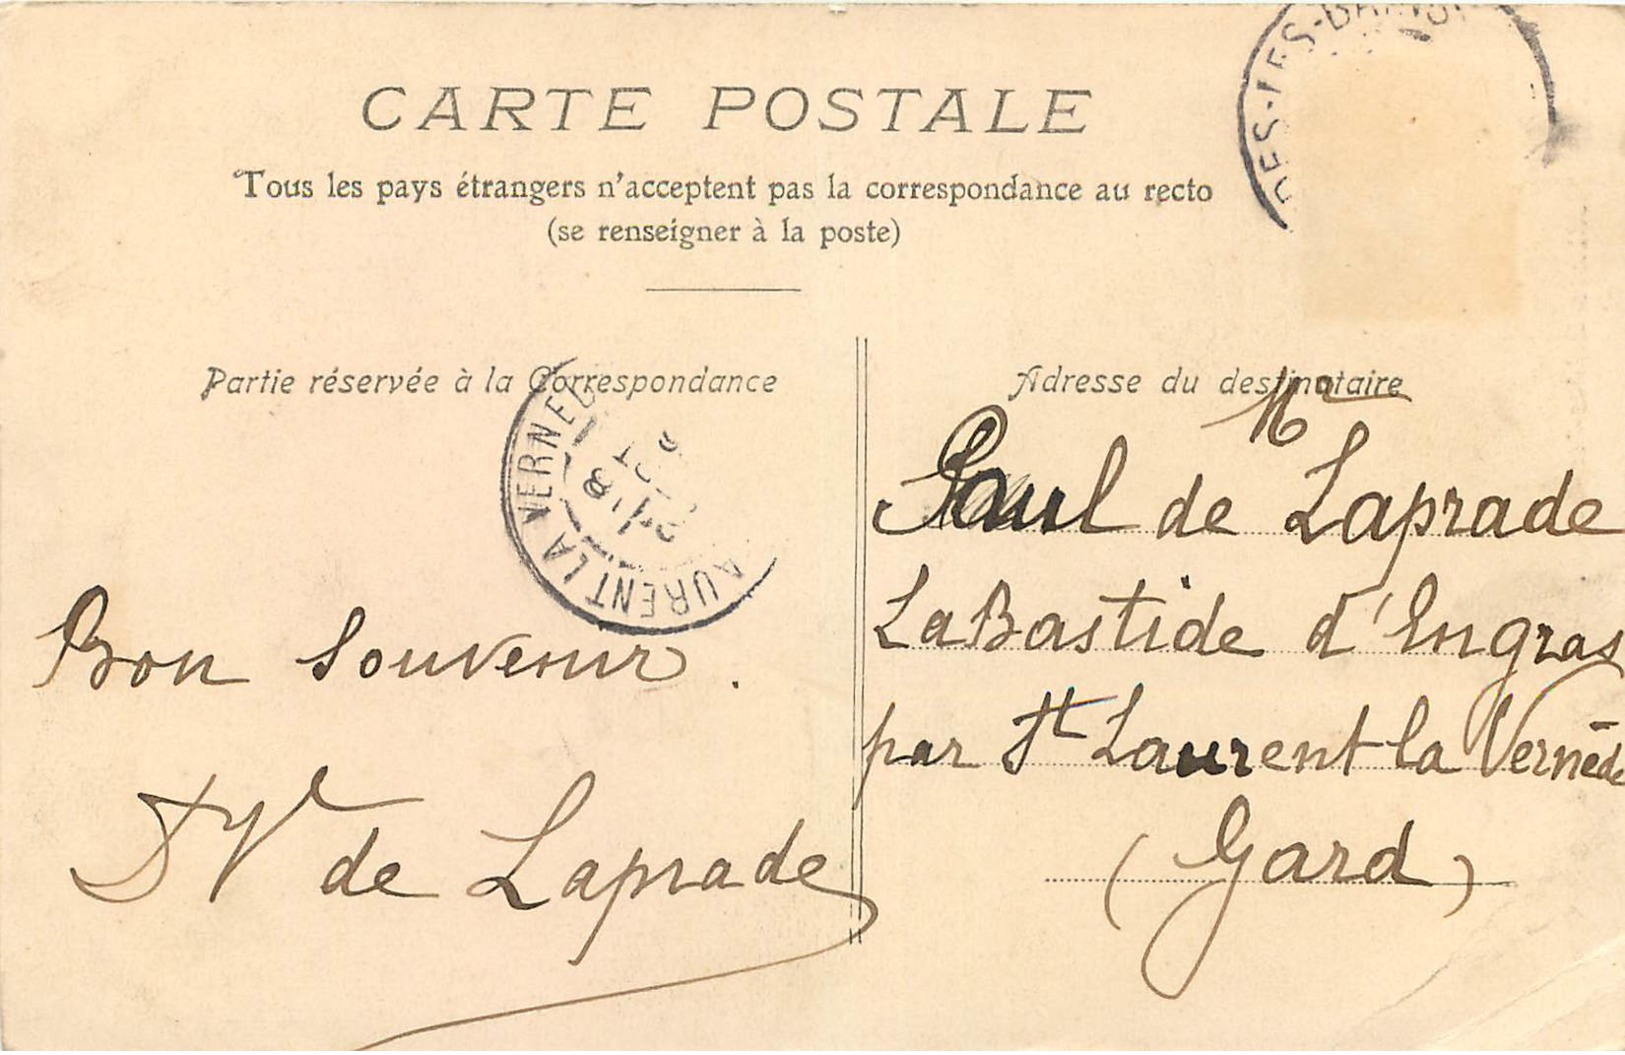 CARTE POSTALE
Tous les pays étrangers n'acceptent pas la correspondance au recto
(se renseigner à la poste)
Partie réservée à la Correspondance
URENT LA VERNED
Bon Souvenir.
de Laprade
ES-LES-BAINS
Adresse du destinataire
Mr
Paul de Laprade
La Bastide d'Engras
par St Laurent la Vernède
(Gard)